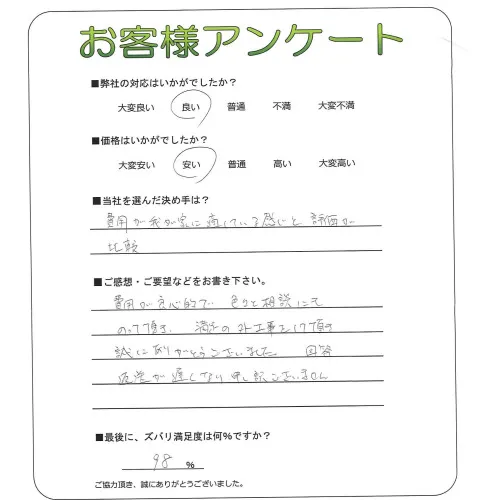 お客様アンケート
■弊社の対応はいかがでしたか？
大変良い 良い 普通 不満 大変不満
■価格はいかがでしたか？
大変安い 安い 普通 高い 大変高い
■当社を選んだ決め手は？
費用が我が家に適している感じと 評価が
比較
■ご感想・ご要望などをお書き下さい。
費用が良心的で 色々と相談にも
のって頂き、満足の 工事をして頂き
誠にありがとうございました 回答
返送が遅くなり申し訳ございません
■最後に、ズバリ満足度は何%ですか？
98 %
ご協力頂き、誠にありがとうございました。